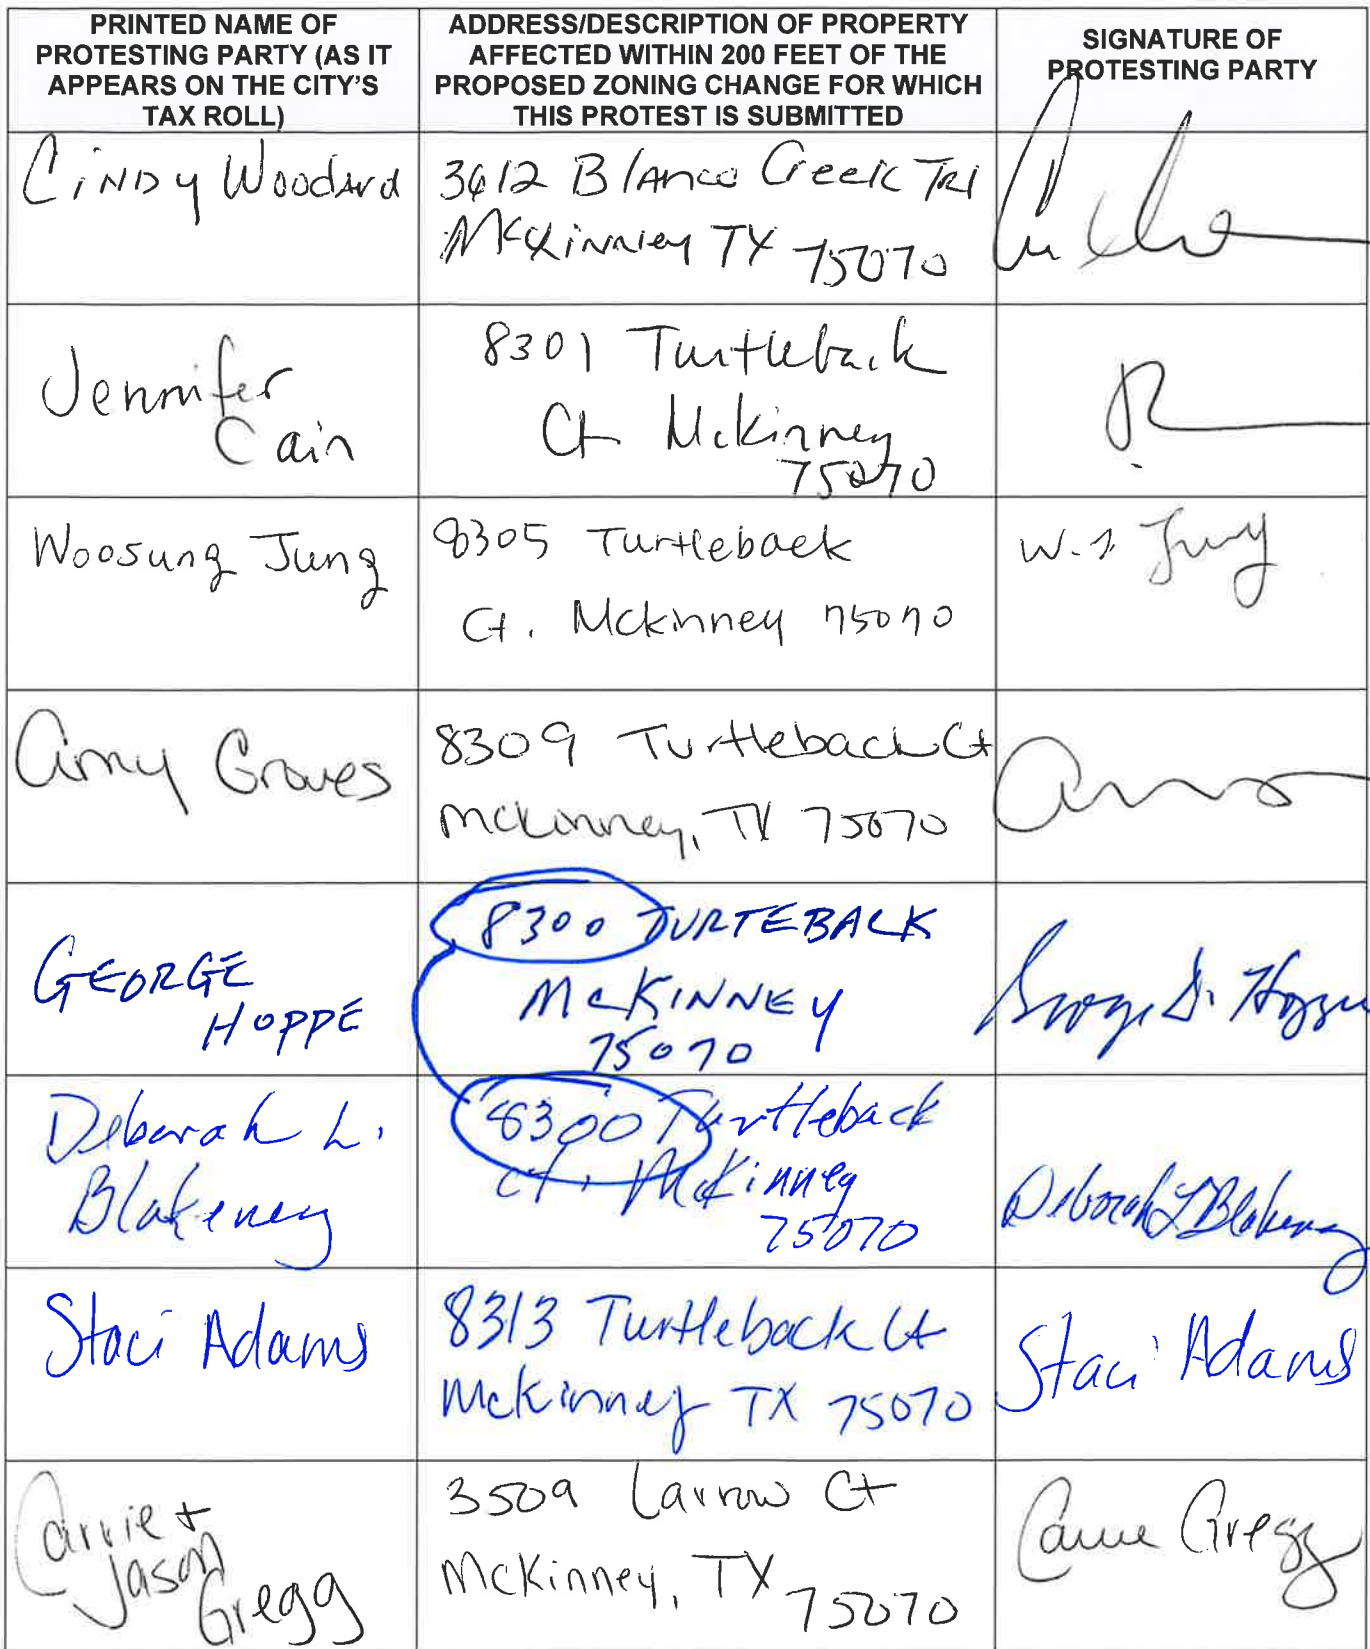 PRINTED NAME OF
PROTESTING PARTY (AS IT
APPEARS ON THE CITY'S
TAX ROLL)
ADDRESS/DESCRIPTION OF PROPERTY
AFFECTED WITHIN 200 FEET OF THE
PROPOSED ZONING CHANGE FOR WHICH
THIS PROTEST IS SUBMITTED
SIGNATURE OF
PROTESTING PARTY
Cindy Woodard
3612 Blanco Creek Trl
McKinney TX 75070
Jennifer
Cain
8301 Turtleback
Ct McKinney
75070
Woosung Jung
8305 Turtleback
Ct. Mckinney 75070
W.S Jung
Amy Groves
8309 Turtleback Ct
McKinney, TX 75070
GEORGE
HOPPE
8300 TURTEBACK
McKINNEY
75070
George D. Hoppe
Deborah L.
Blakeney
8300 Turtleback
ct. McKinney
75070
Deborah L Blakeney
Staci Adams
8313 Turtleback Ct
McKinney TX 75070
Staci Adams
Carrie +
Jason
Gregg
3509 Larrow Ct
McKinney, TX
75070
Carrie Gregg